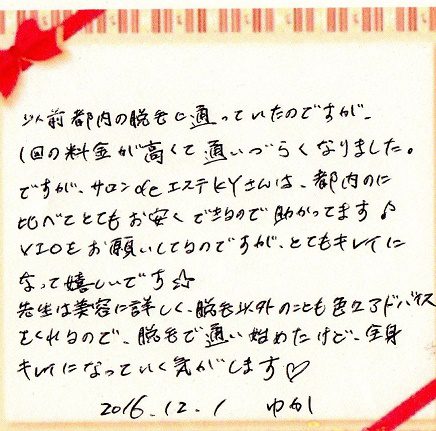 以前都内の脱毛に通っていたのですが、
1回の料金が高くて通いづらくなりました。
ですが、サロンdeエステKYさんは、都内のに
比べてとてもお安くできるので助かってます♪
VIOをお願いしてるのですが、とてもキレイに
なって嬉しいです☆
先生は美容に詳しく、脱毛以外のことも色々アドバイス
をくれるので、脱毛で通い始めたけど、全身
キレイになっていく気がします♡
2016.12.1 ゆかし